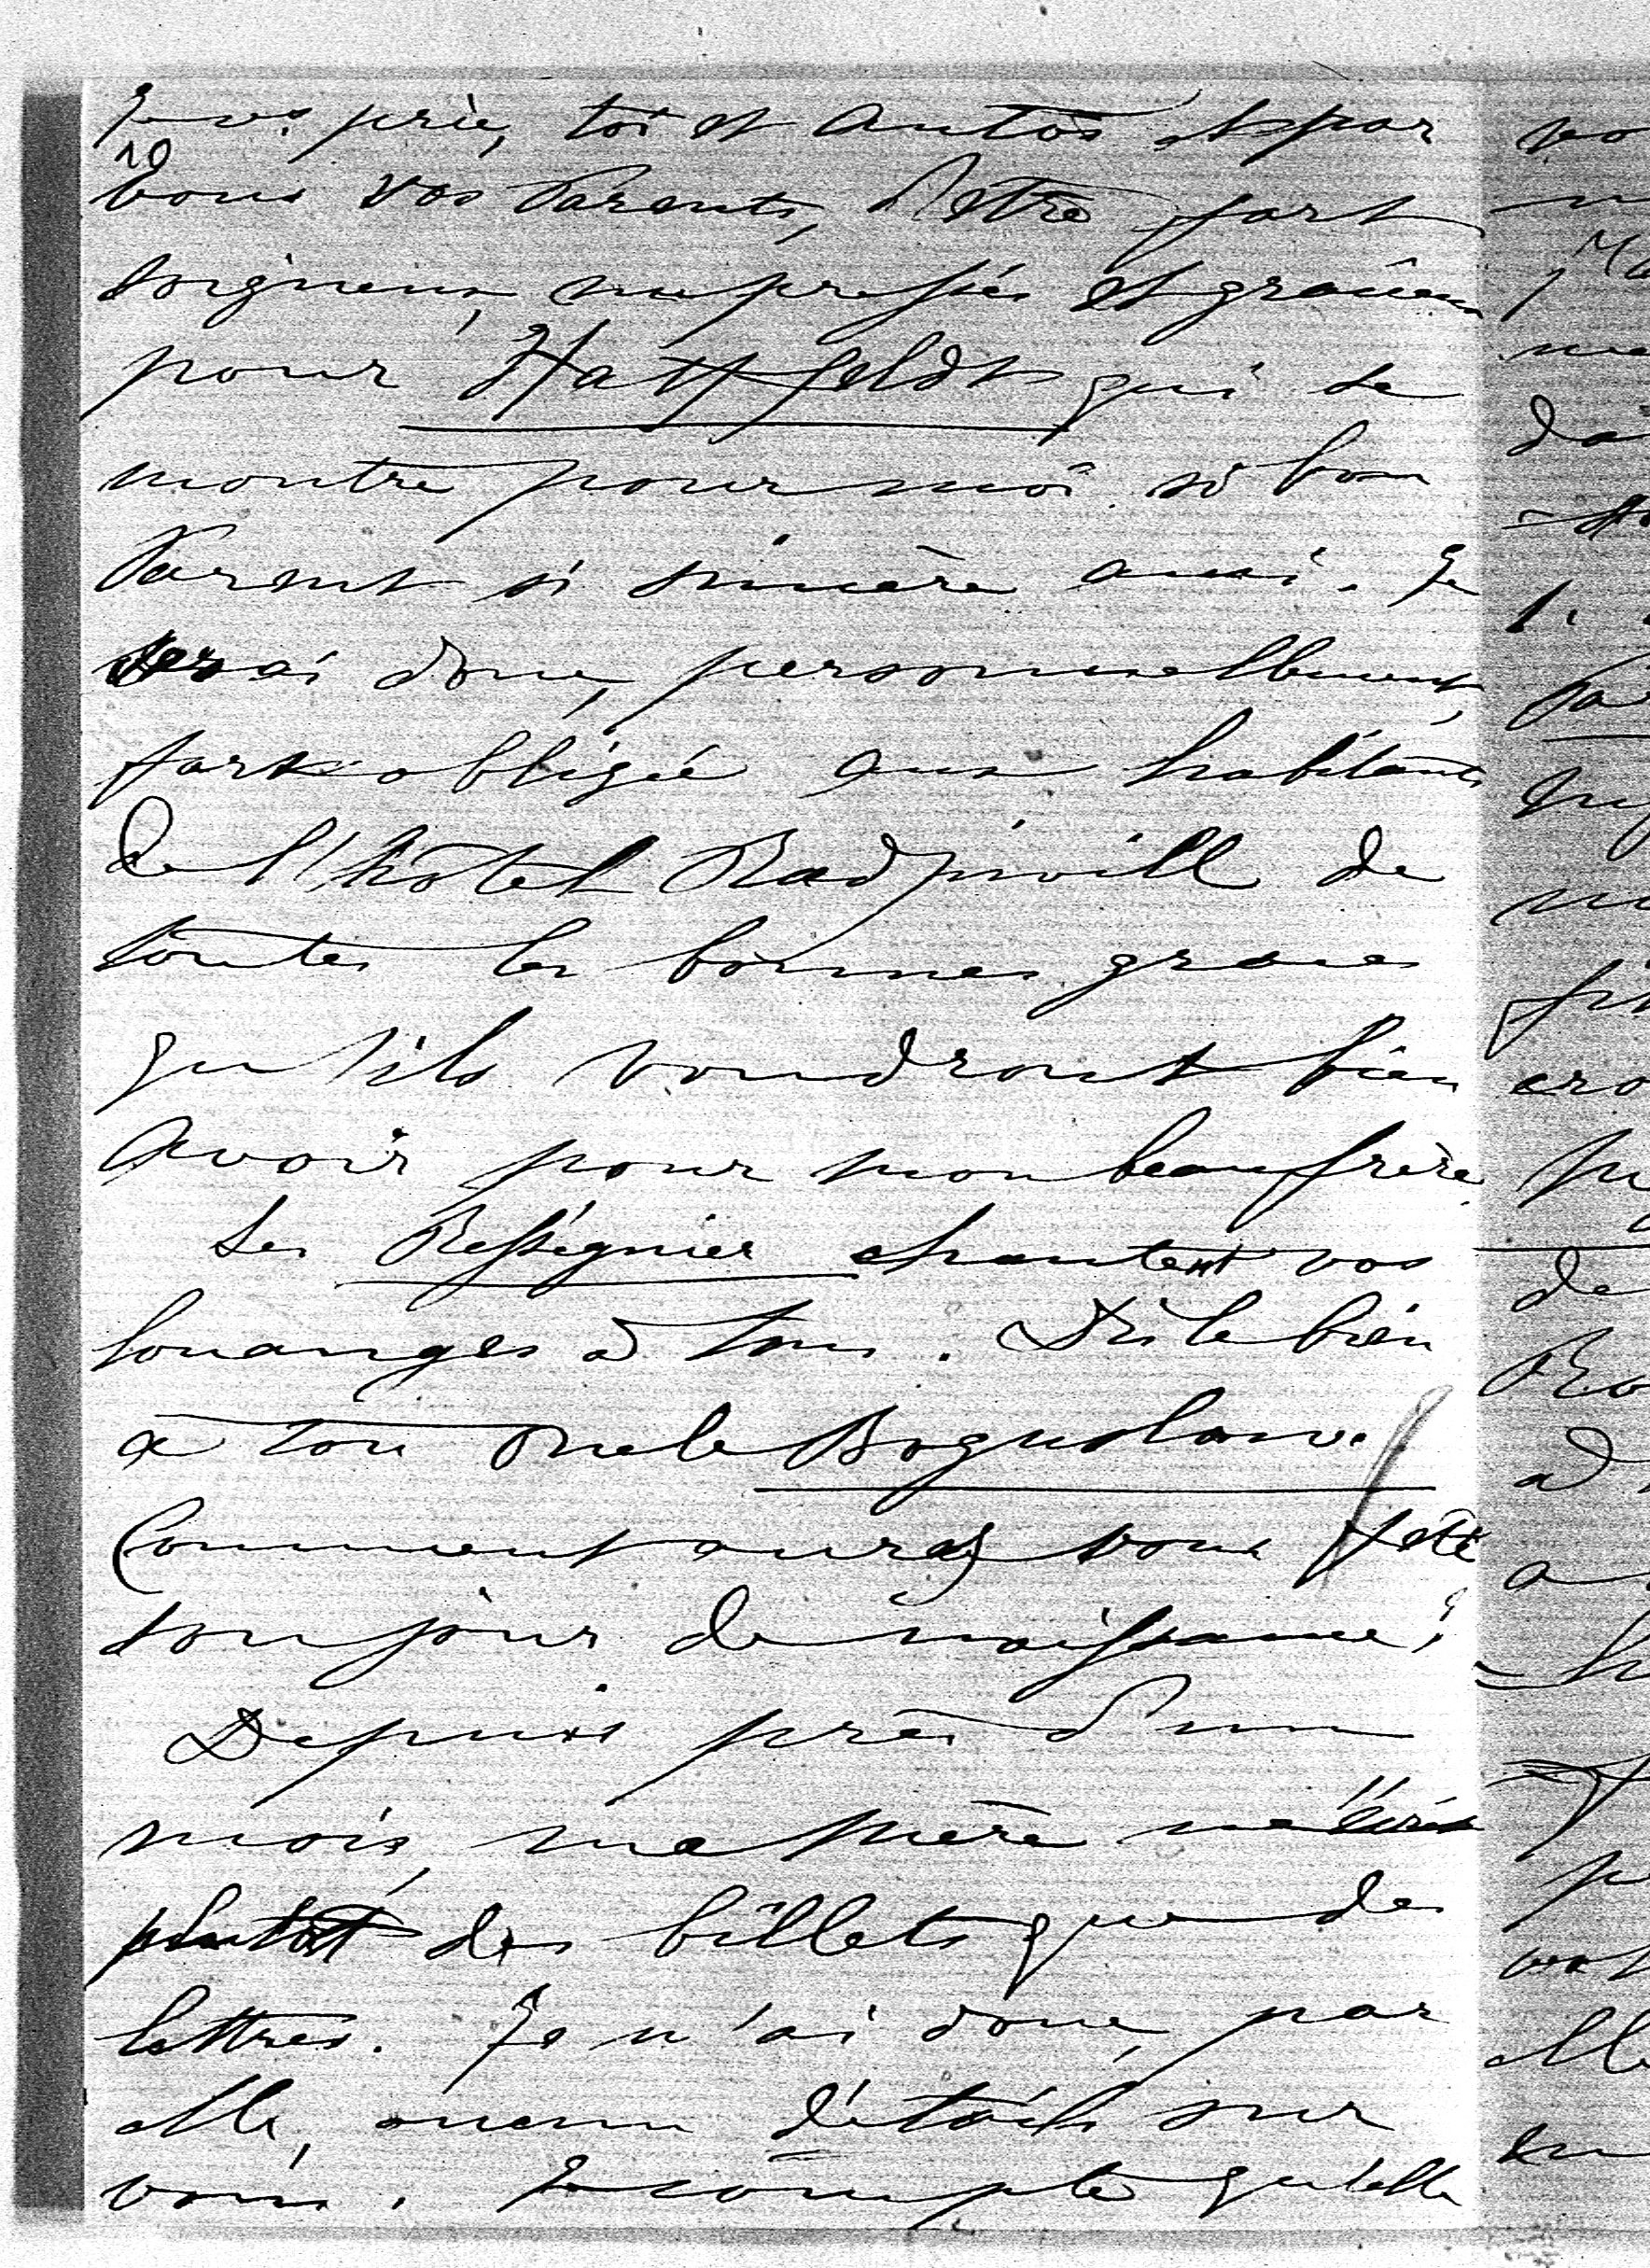 Je vs prie, toi et Antoś et par
10
vous vos Parents, d'etre fort
soigneux, empressés et gracieux
pour Hatzfeldt qui se
montre pour moi si bon
Parent si sincère aussi. Je
serai donc, personnellement,
fort obligée aux habitants
de l'hôtel Radziwill de
toutes les bonnes graces
qu'ils voudront bien
avoir pour mon beaufrère.
Les Rességuier chantent vos
louanges à tous. Dis le bien
à ton Oncle Boguslaw.
Comment aurez vous fêté
ton jour de naissance?
Depuis près d'un
mois, ma Mère m'écrit
plutôt des billets que des
lettres. Je n'ai donc, par
elle, aucun détails sur
vous. Je compte qu'elle